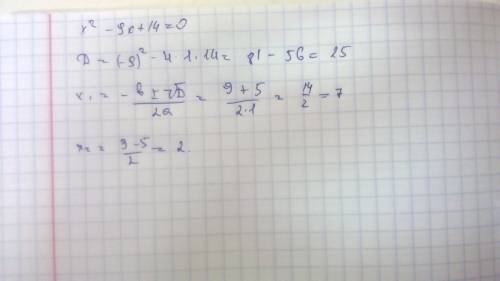 x² - 9x + 14 = 0
D = (-9)² - 4·1·14 = 81 - 56 = 25
x₁ = -b ± √D / 2a = 9 + 5 / 2·1 = 14/2 = 7
x₂ = 9 - 5 / 2 = 2.